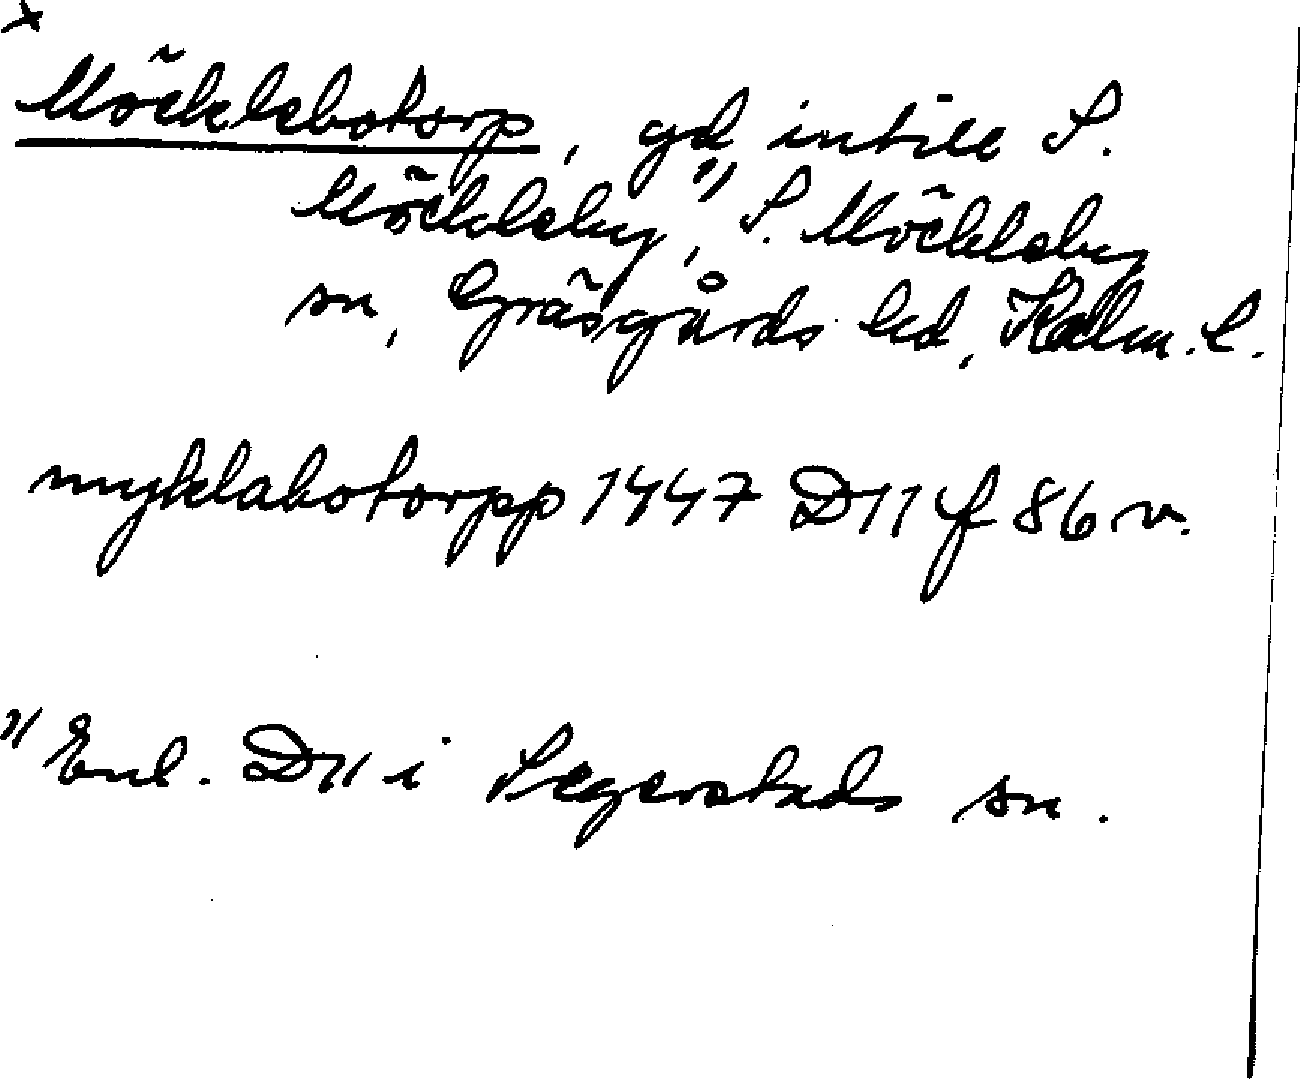 x
Möcklebotorp, gd intill S.
Möckleby,¹⁾ S. Möckleby
sn, Gräsgårds hd, Kalm. l.
myklabotorpp 1447 D11 f 86 v.
¹⁾ Enl. D11 i Segerstads sn.